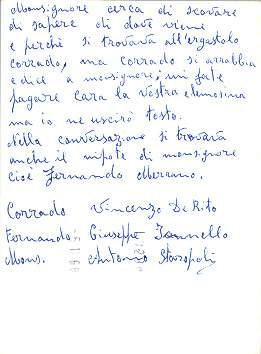 Monsignore cerca di scavare
di sapere di dove viene
e perchè si trovava all'ergastolo
corrado, ma corrado si arrabbia
e dice a monsignore, mi fate
pagare cara la vostra elemosina
ma io ne uscirò tosto.
Nella conversazione si trovava
anche il nipote di monsignore
cioè Fernando Merrano.
Corrado Vincenzo De Rito
Fernando Giuseppe Iannello
Mons. Antonio Staropoli